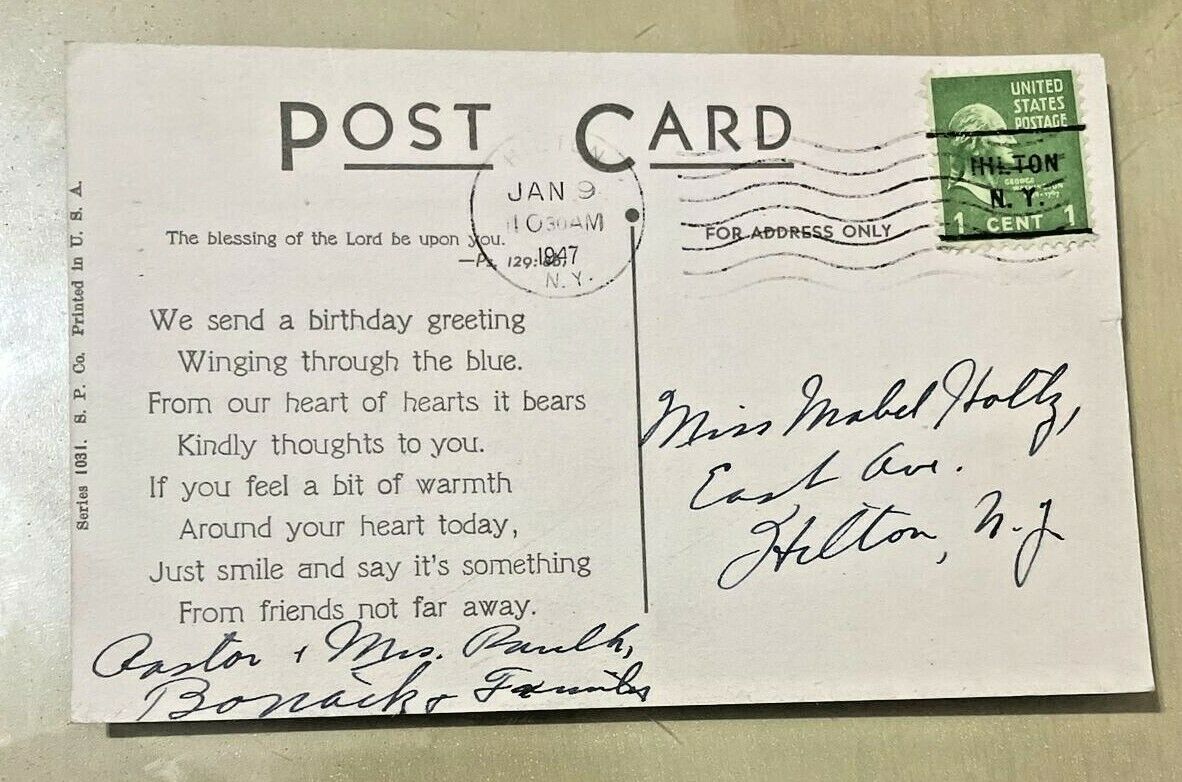 POST CARD
UNITED
STATES
POSTAGE
HILTON
N. Y.
GEORGE
1 CENT 1
JAN 9
1030 AM
1947
N.Y.
FOR ADDRESS ONLY
The blessing of the Lord be upon you.
—Ps. 129:
We send a birthday greeting
Winging through the blue.
From our heart of hearts it bears
Kindly thoughts to you.
If you feel a bit of warmth
Around your heart today,
Just smile and say it's something
From friends not far away.
Pastor + Mrs. Paul H.
& Family
Miss Mabel Holtz,
East Ave.
Hilton, N.Y.
Series 1031. S. P. Co. Printed in U. S. A.